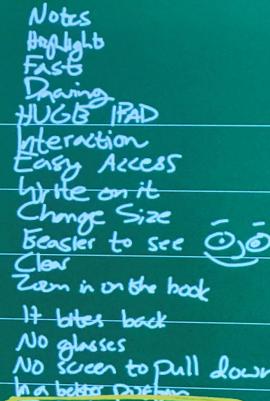 Notes
Highlight
Fast
Drawing
HUGE IPAD
Interaction
Easy Access
Write on it
Change Size
Easier to see
Clear
Zoom in on the book
It bites back
NO glasses
NO screen to pull down
In a better position